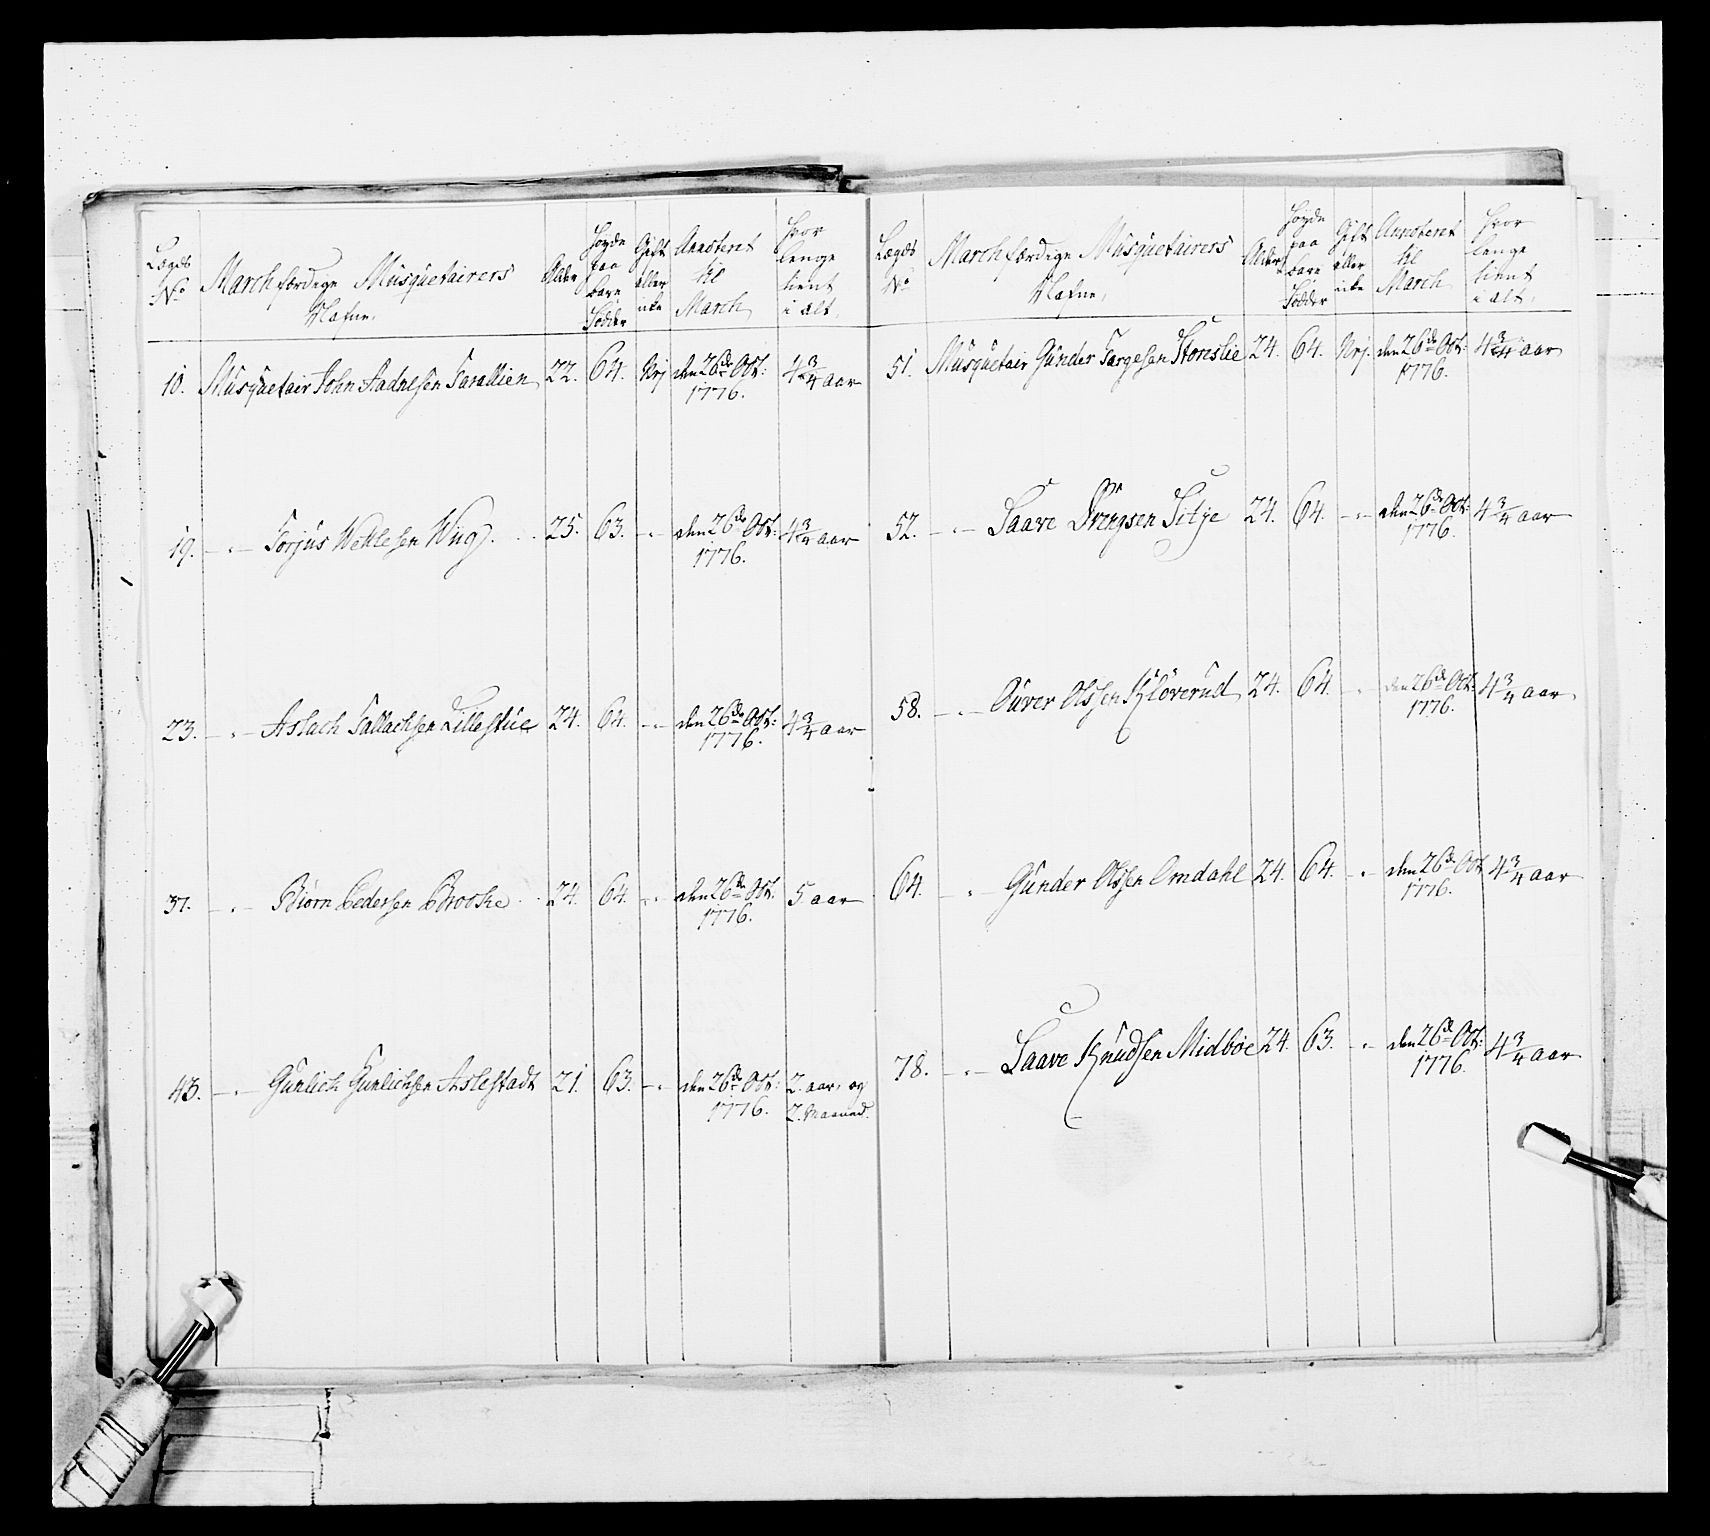 Lægds No
March færdige Musquetairers Nafne.
Alder
Høyde paa bare Fødder
Gift eller icke
Annoteret til March
Hvor lenge tient i alt.
10. Musquetair John Aadnesen Taraldlien 22. 64. Nej den 26de Oct: 1776. 4 3/4 aar
19. — " — Torjus Wetlesen Wiig 25. 63. — " — den 26de Oct: 1776. 4 3/4 aar
23. — " — Aslach Tallachsen Lillestue 24. 64. — " — den 26de Oct: 1776. 4 3/4 aar
37. — " — Biørn Pedersen Brooke 24. 64. — " — den 26de Oct. 1776. 5 aar
43. — " — Gunlich Gunlichsen Aslestadt 21. 63. — " — den 26de Oct: 1776. 2. aar og 2. Maaned.
Lægds No
March færdige Musquetairers Nafne.
Alder
Høyde paa bare Fødder
Gift eller icke
Annoteret til March
Hvor lenge tient i alt.
51. Musquetair Gunder Torgesen Storeslie 24. 64. Nej. den 26de Oct: 1776. 4 3/4 aar
52. — " — Saave Drengsen Sitje 24. 64. — " — den 26de Oct: 1776. 4 3/4 aar
58. — " — Ouver Olssen Kløverud 24. 64. " den 26de Oct: 1776. 4 3/4 aar
64. — " — Gunder Olssen Omdahl 24. 64. — " den 26de Oct 1776. 4 3/4 aar
78. — " — Saave Knudsen Midbøe 24. 63. — " — den 26de Oct: 1776. 4 3/4 aar